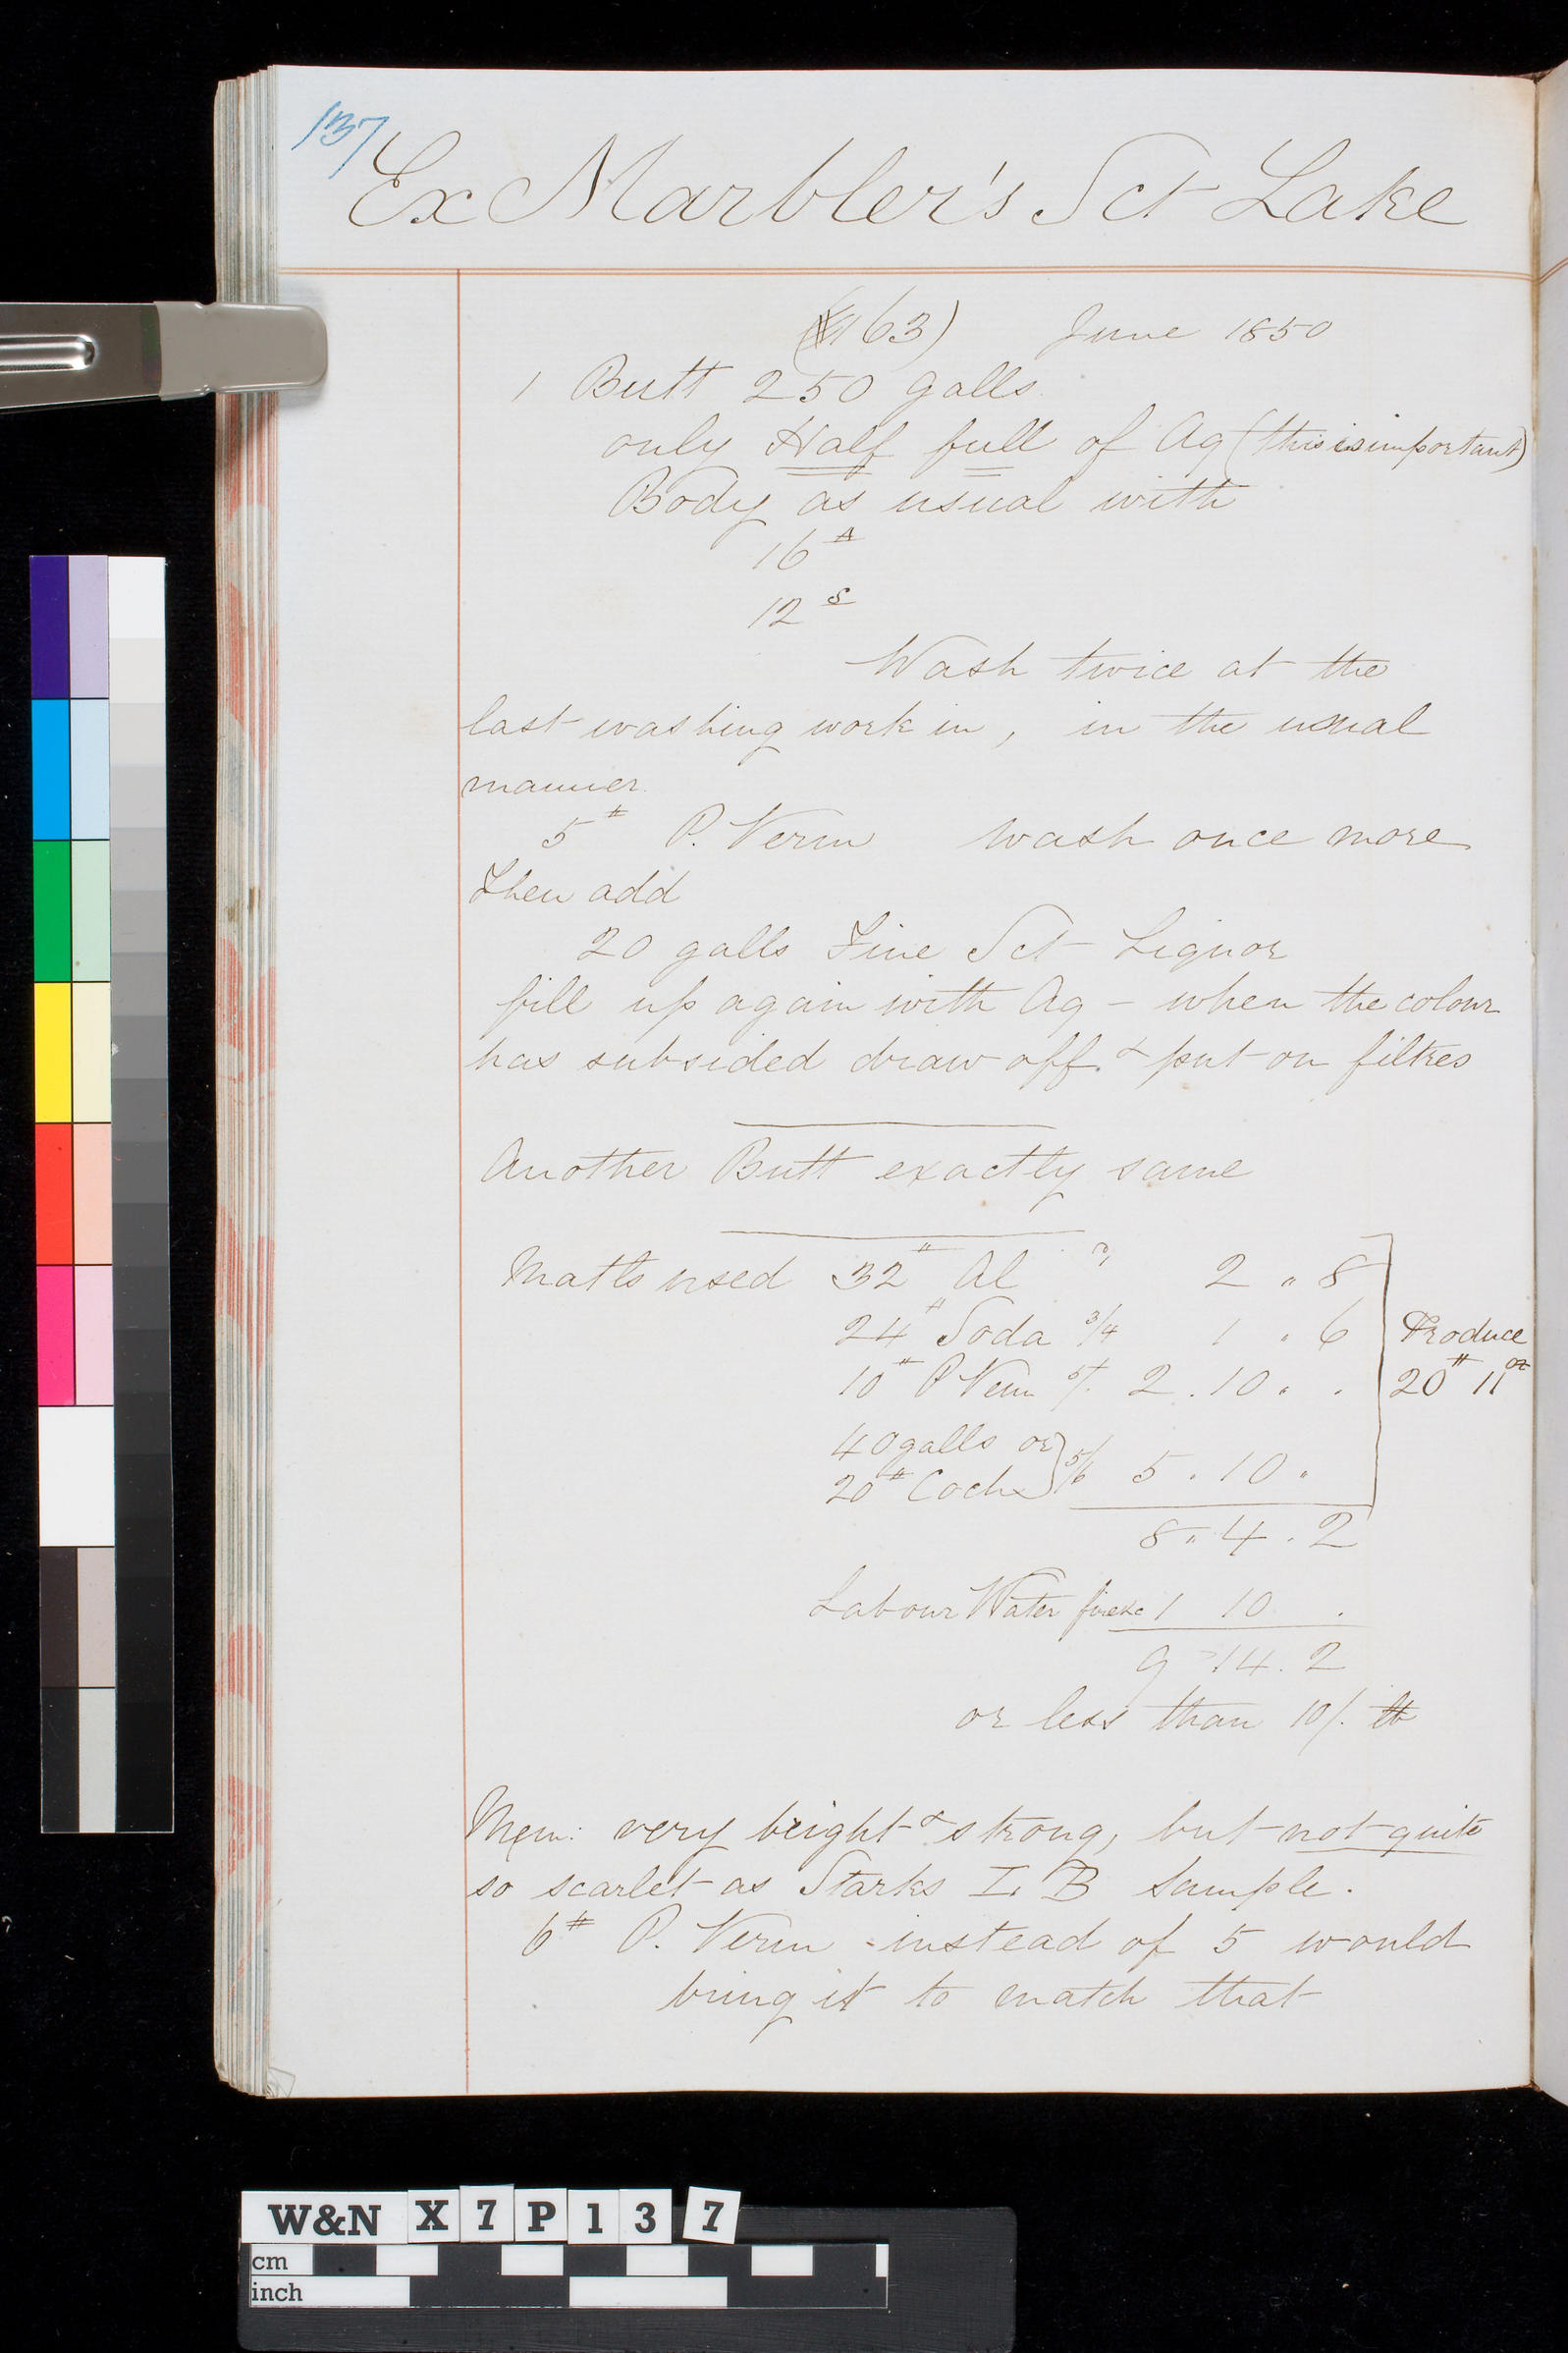 137
Ex Marbler's Sct Lake
163) June 1850
1 Butt 250 galls
only Half full of Aq (this is important)
Body as usual with
16 A
12 S
Wash twice at the
last washing work in, in the usual
manner.
5# P. Verm wash once more
Then add
20 galls Fine Sct Liquor
fill up again with Aq – when the colour
has subsided draw off & put on filtres
Another Butt exactly same
Matls used 32# Al 2 " 8
24# Soda 3/4 1 " 6
10# P Verm 5/. 2 . 10 " .
40 galls or
20# Coch } 5/6 5 . 10 "
Produce
20# 11oz
8 " 4 . 2
Labour Water fire &c 1 10 .
9 14 . 2
or less than 10/. lb
Mem: very bright & strong, but not quite
so scarlet as Starks I. B sample.
6# P. Verm instead of 5 would
bring it to match that
W&N X7P137
cm
inch